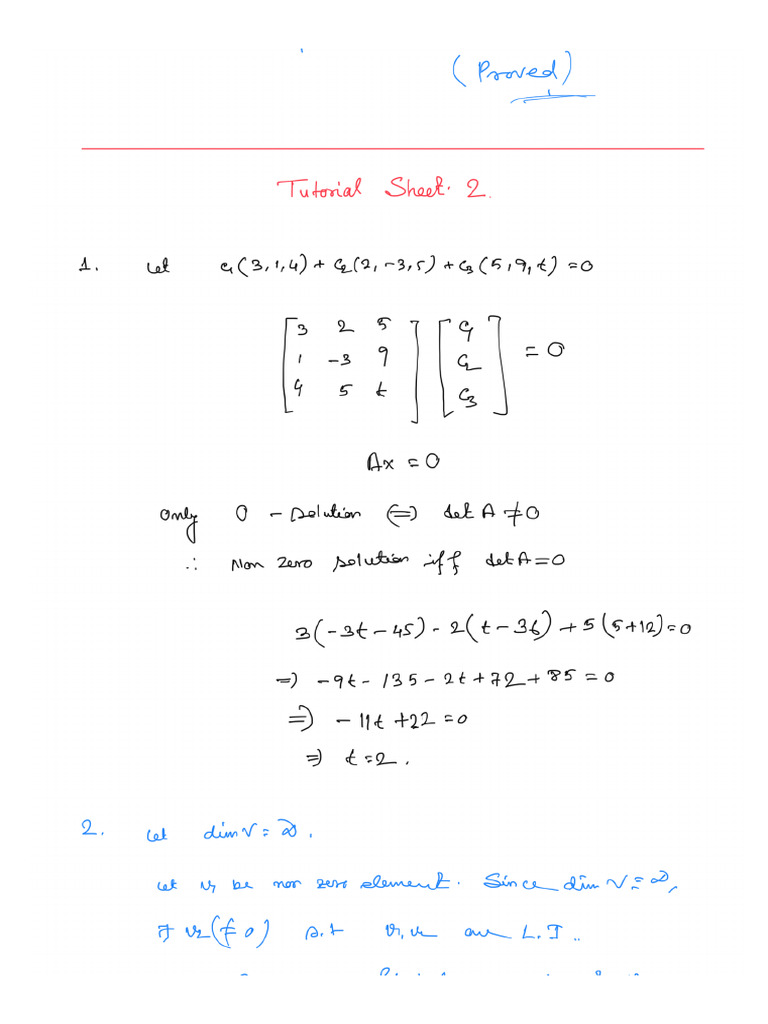 (Proved)
Tutorial Sheet. 2.
1. Let c1(3,1,4) + c2(2,-3,5) + c3(5,9,t) = 0
[3 2 5; 1 -3 9; 4 5 t] [c1; c2; c3] = 0
Ax = 0
Only 0 - solution ⇔ det A ≠ 0
∴ Non zero solution iff det A = 0
3(-3t-45) - 2(t-36) + 5(5+12) = 0
⇒ -9t - 135 - 2t + 72 + 85 = 0
⇒ -11t + 22 = 0
⇒ t = 2.
2. Let dim V = ∞.
Let v1 be non zero element. Since dim V = ∞,
∃ v2(≠0) s.t v1, v2 are L.I..